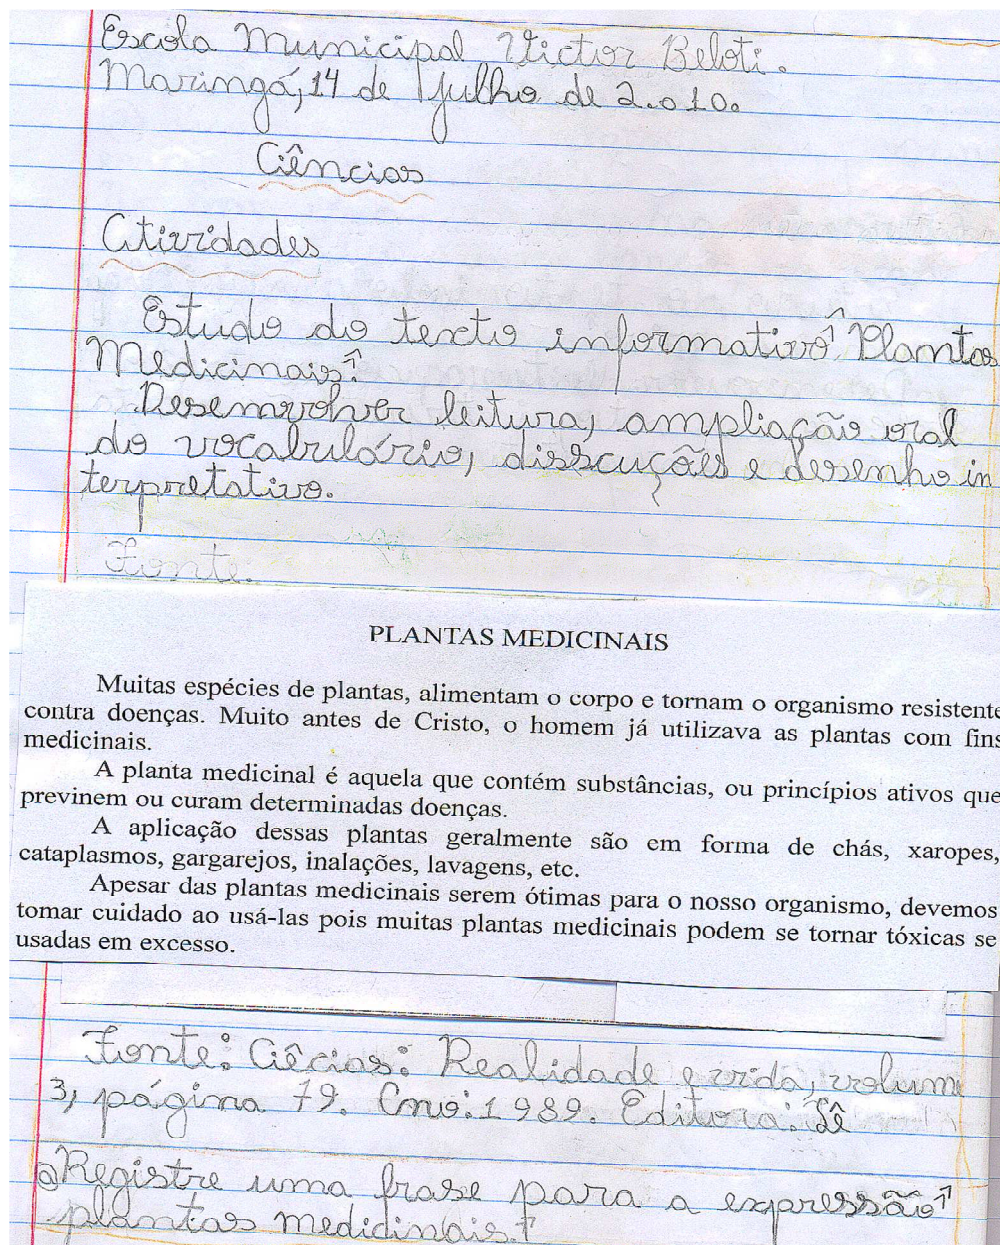 Escola Municipal Victor Beloti.
Maringá, 14 de julho de 2.010.
Ciências
Atividades
Estudo do texto informativo "Plantas
Medicinais".
Desenvolver leitura, ampliação oral
do vocabulário, disscuções e desenho in
terpretativo.
Fonte.
PLANTAS MEDICINAIS
Muitas espécies de plantas, alimentam o corpo e tornam o organismo resistente
contra doenças. Muito antes de Cristo, o homem já utilizava as plantas com fins
medicinais.
A planta medicinal é aquela que contém substâncias, ou princípios ativos que
previnem ou curam determinadas doenças.
A aplicação dessas plantas geralmente são em forma de chás, xaropes,
cataplasmos, gargarejos, inalações, lavagens, etc.
Apesar das plantas medicinais serem ótimas para o nosso organismo, devemos
tomar cuidado ao usá-las pois muitas plantas medicinais podem se tornar tóxicas se
usadas em excesso.
Fonte: Ciêcias: Realidade e vida, volume
3, página 79. Ano: 1989. Editora: Lê
a) Registre uma frase para a expressão "
plantas medicinais."